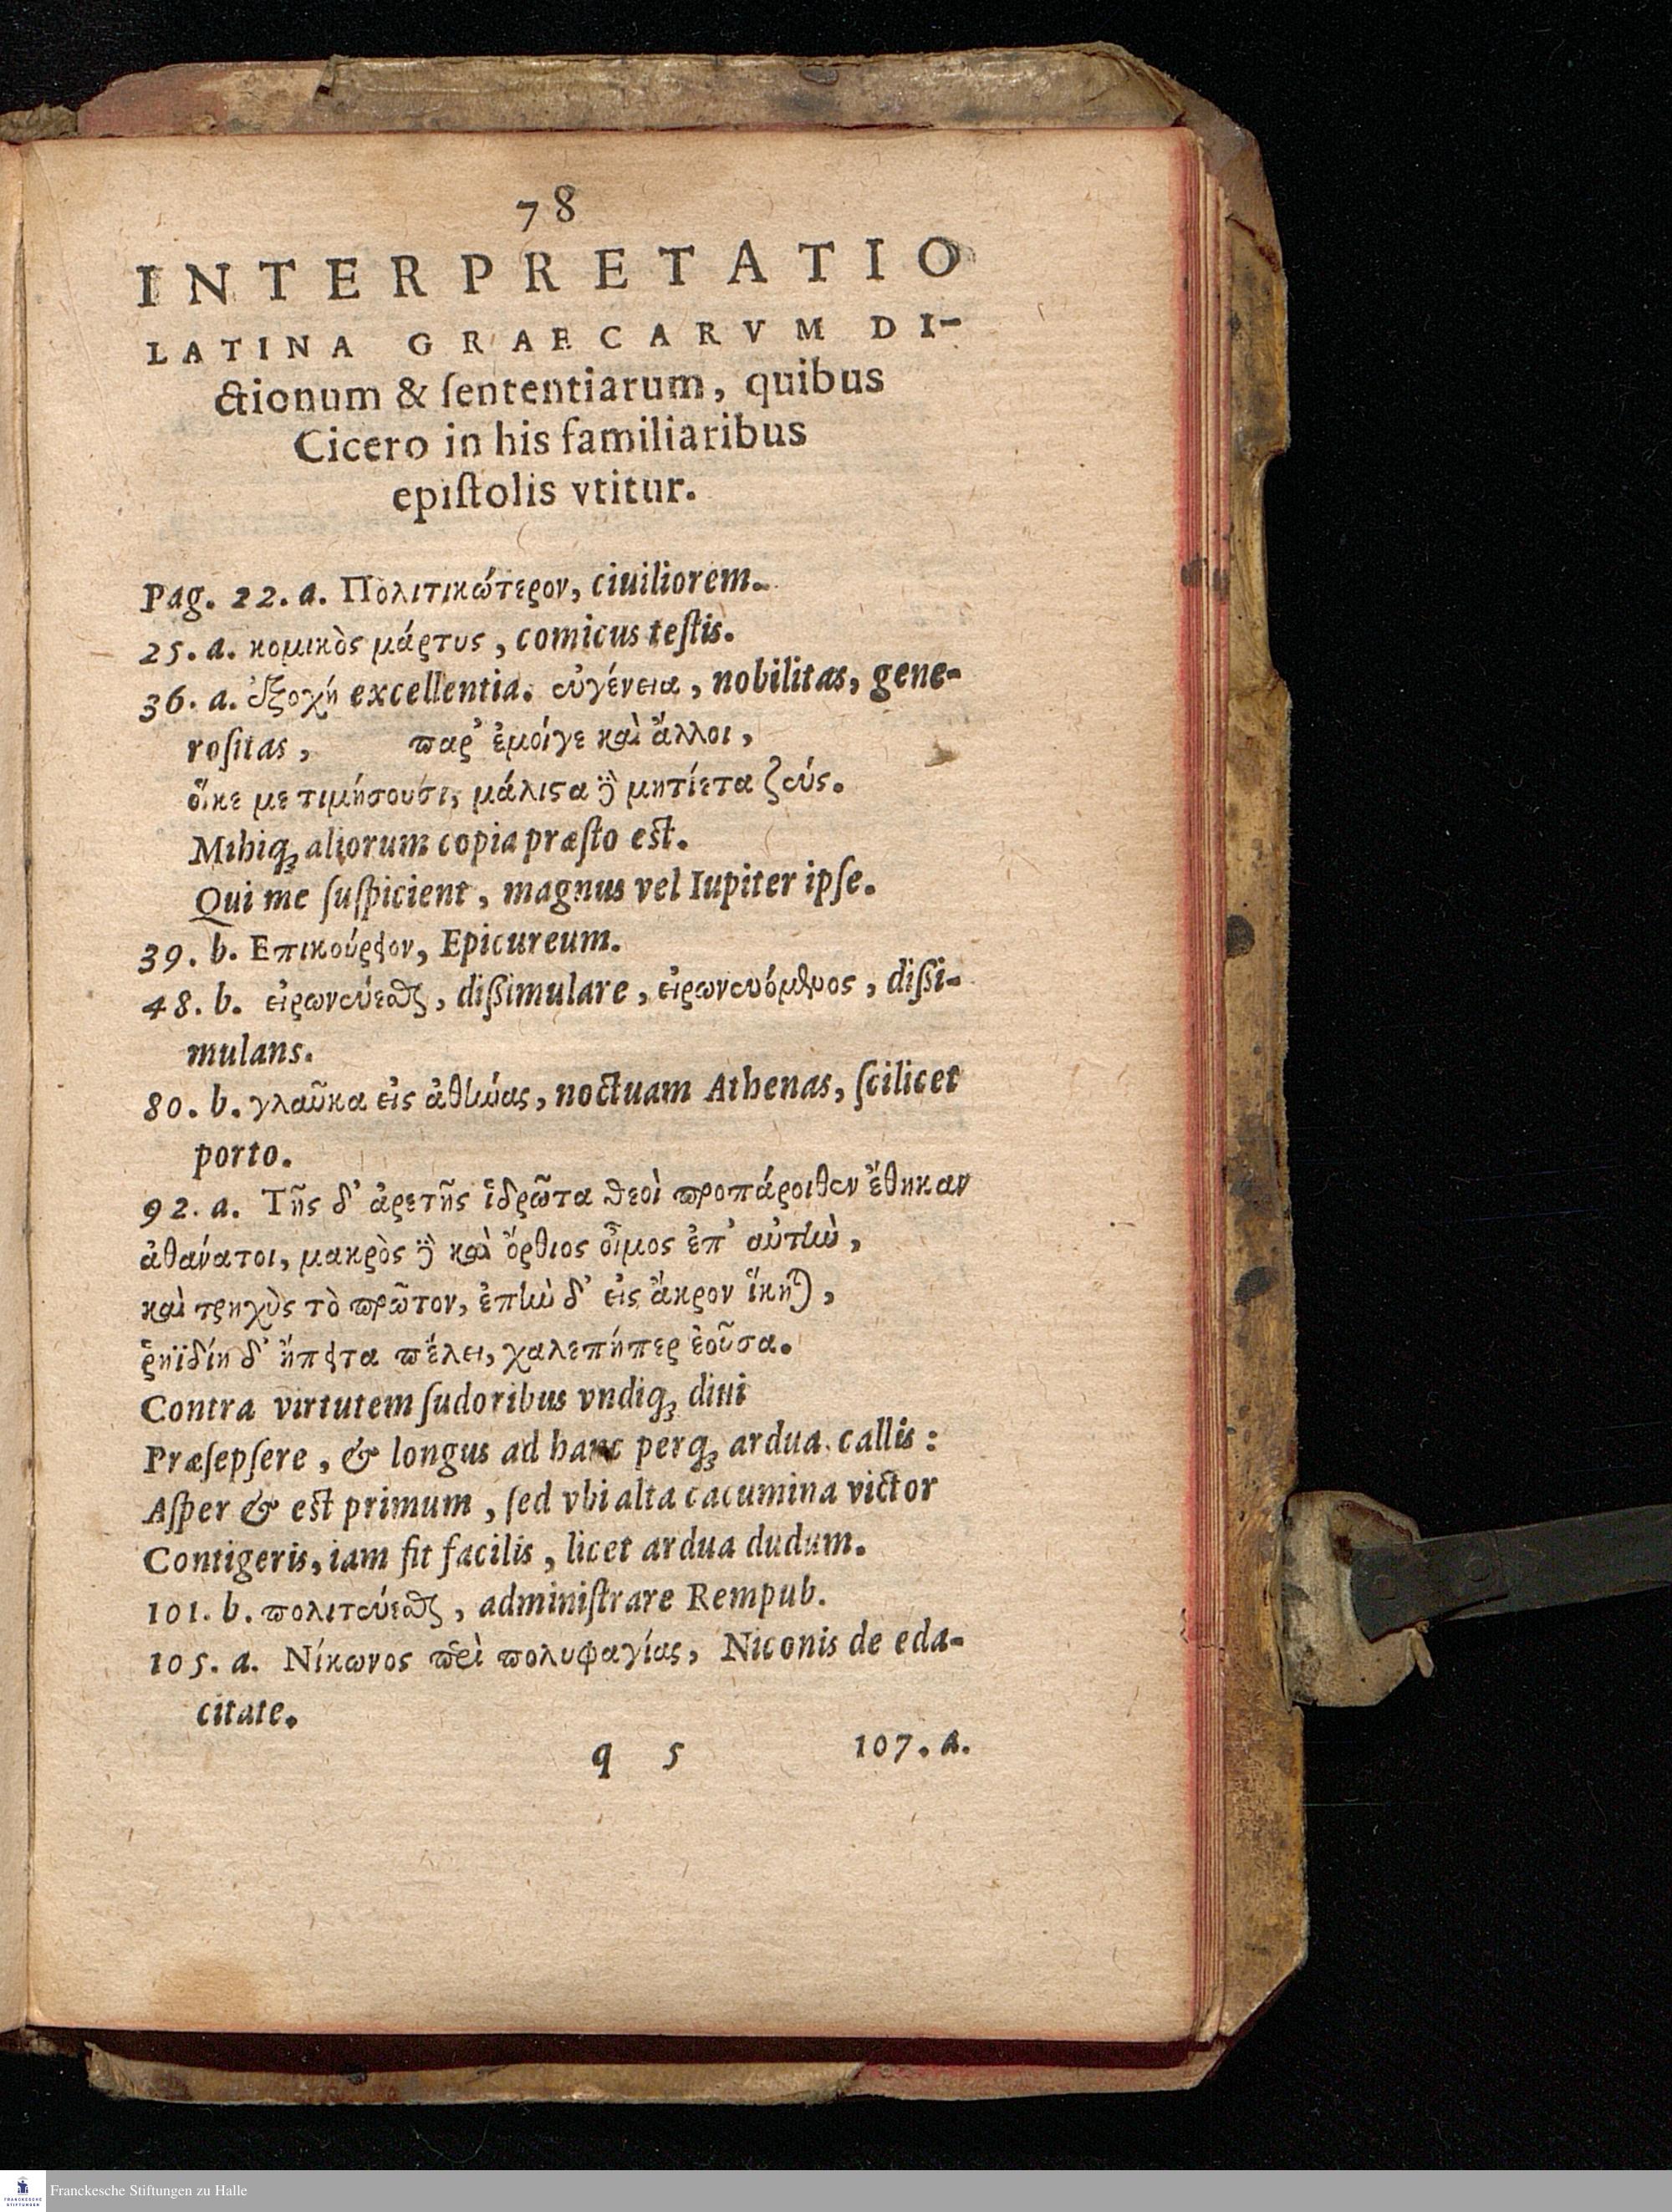 78
INTERPRETATIO
LATINA GRAECARVM DI-
ctionum & ſententiarum, quibus
Cicero in his familiaribus
epiſtolis vtitur.
Pag. 22. a. Πολιτικώτερον, ciuiliorem.
25. a. κομικὸς μάρτυς, comicus teſtis.
36. a. ἐξοχή excellentia. εὐγένεια, nobilitas, gene-
roſitas, παρ' ἐμοίγε καὶ ἄλλοι,
οἵκε με τιμήσουσι, μάλιϛα ϳ μητίετα ζεύς.
Mihiq́ꝫ aliorum copia præſto est.
Qui me ſuſpicient, magnus vel Iupiter ipſe.
39. b. Επικούρειον, Epicureum.
48. b. εἰρωνεύεσθαι, dißimulare, εἰρωνευόμενος, dißi-
mulans.
80. b. γλαῦκα εἰς ἀθήνας, noctuam Athenas, ſcilicet
porto.
92. a. Τῆς δ' ἀρετῆς ἱδρῶτα θεοὶ προπάροιθεν ἔθηκαν
ἀθανάτοι, μακρὸς δὲ καὶ ὄρθιος οἶμος ἐπ' αὐτὴν,
καὶ τρηχὺς τὸ πρῶτον, ἐπὴν δ' εἰς ἄκρον ἵκηται,
ῥηϊδίη δ' ἤπειτα πέλει, χαλεπήπερ ἐοῦσα.
Contra virtutem ſudoribus vndiqꝫ diui
Præſepſere, & longus ad hanc perqꝫ ardua callis:
Aſper & est primum, ſed vbi alta cacumina victor
Contigeris, iam fit facilis, licet ardua dudum.
101. b. πολιτεύεσθαι, adminiſtrare Rempub.
105. a. Νίκωνος περὶ πολυφαγίας, Niconis de eda-
citate.
q 5 107. a.
Franckesche Stiftungen zu Halle
FRANCKESCHE
STIFTUNGEN